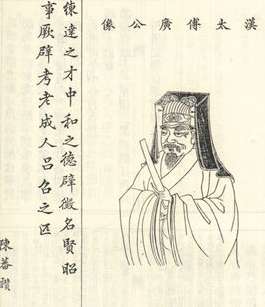 漢太傅廣公像
練達之才中和之德辟徵名賢昭
事厥辟考老成人吕召之匹
陳蕃讚